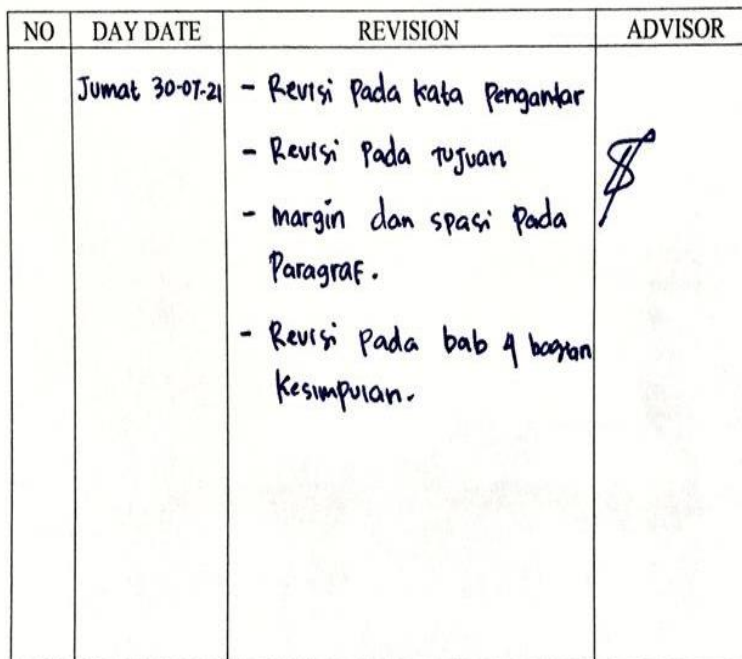 NO DAY DATE REVISION ADVISOR
Jumat 30-07-21 - Revisi Pada Kata Pengantar
- Revisi Pada Tujuan
- margin dan spasi Pada
Paragraf.
- Revisi pada bab 4 bagian
Kesimpulan.